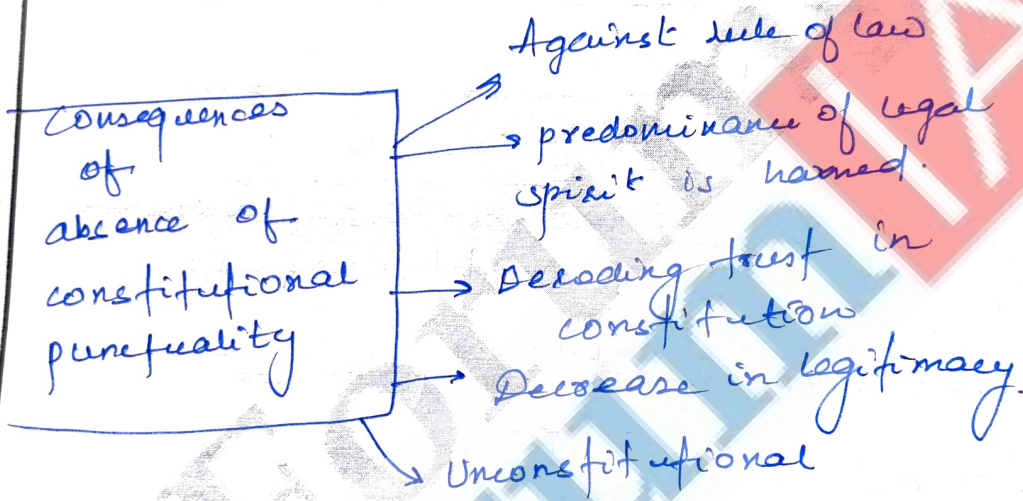 Consequences
of
absence of
constitutional
punctuality
Against rule of law
predominance of legal
spirit is harmed.
Deroding trust in
constitution
Decrease in legitimacy.
Unconstitutional